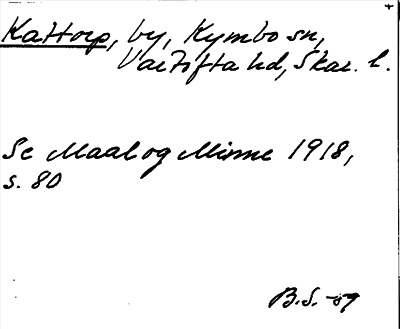 Kattorp, by, Kymbo sn,
Vartofta hd, Skar. l.
Se Maal og Minne 1918,
s. 80
B.S. -59